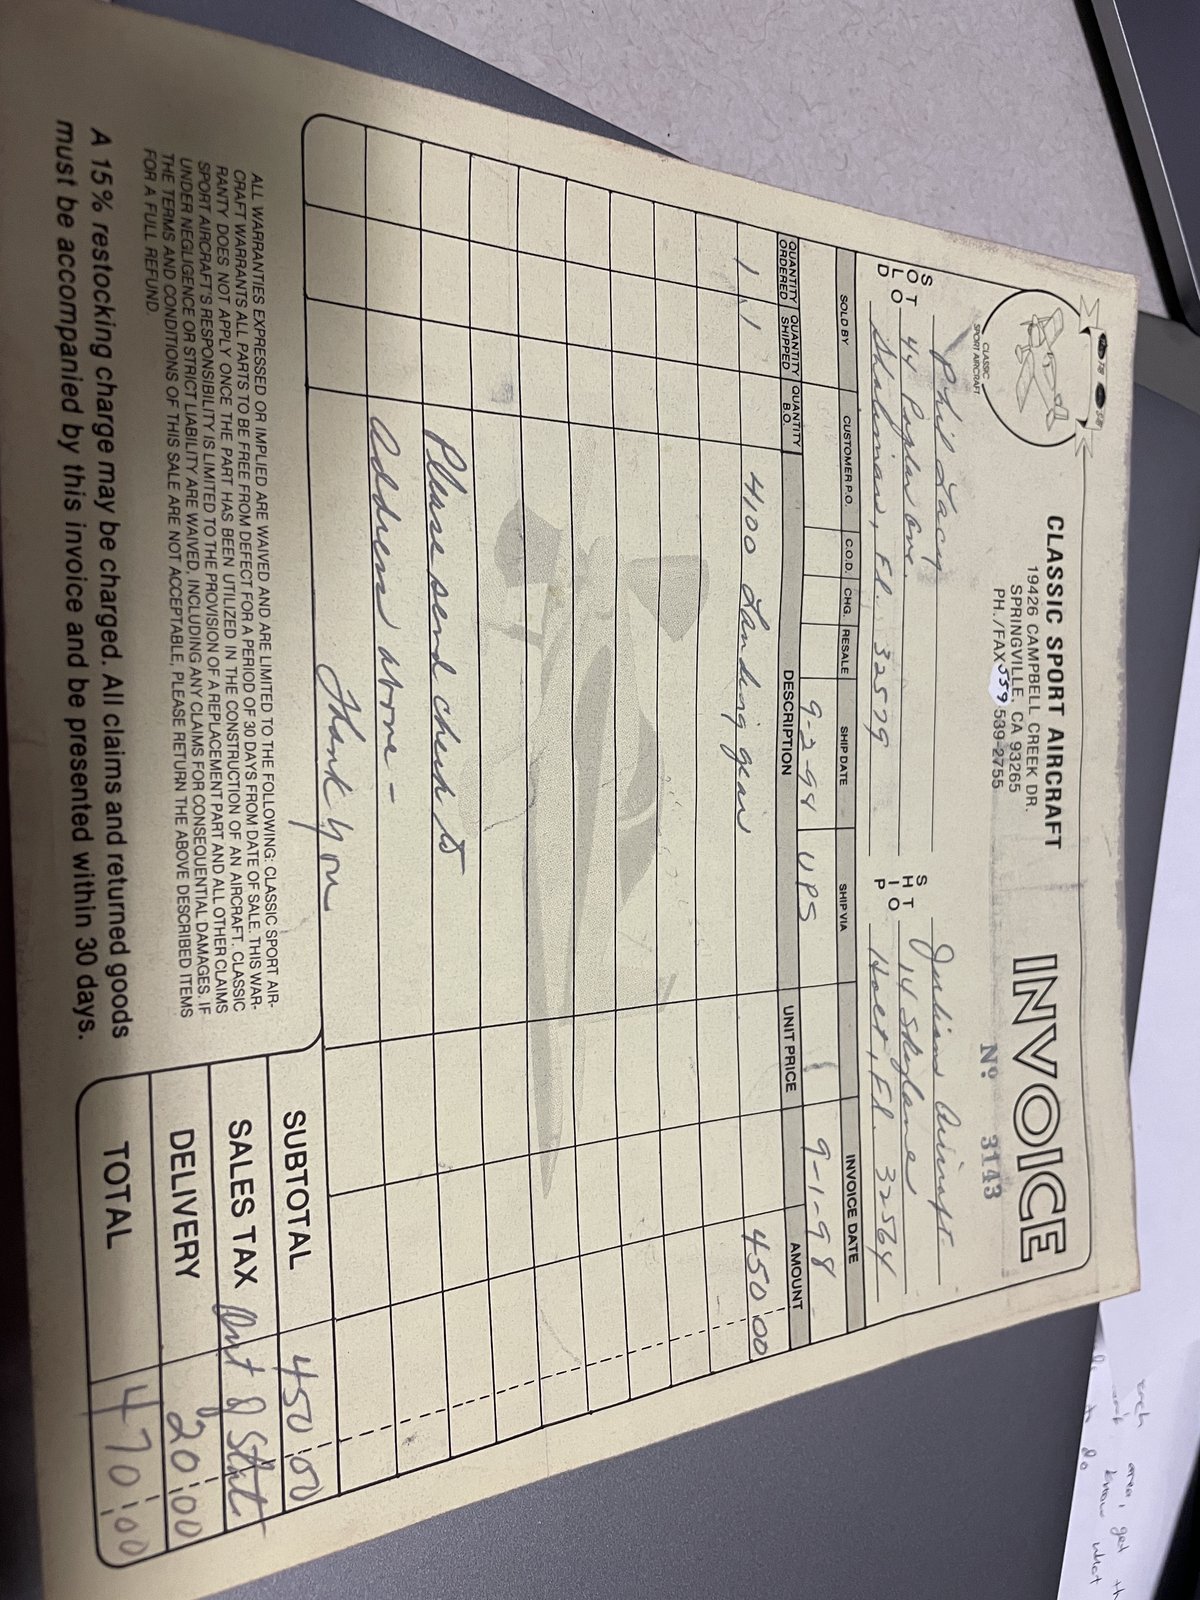 CLASSIC SPORT AIRCRAFT
19426 CAMPBELL CREEK DR.
SPRINGVILLE, CA 93265
PH./FAX 559 539-2755
CLASSIC
SPORT AIRCRAFT
INVOICE
Nº 3143
SOLD TO
Phil Lacy
44 Poplar Ave.
Shalimar, Fl. 32579
SHIP TO
Julian Aircraft
14 Skylane
Holt, Fl. 32564
SOLD BY CUSTOMER P.O. C.O.D. CHG. RESALE SHIP DATE SHIP VIA INVOICE DATE
9-2-98 UPS 9-1-98
QUANTITY ORDERED QUANTITY SHIPPED QUANTITY B.O. DESCRIPTION UNIT PRICE AMOUNT
1 1 4100 Landing gear 450 00
Please send check to
address above -
Thank you
ALL WARRANTIES EXPRESSED OR IMPLIED ARE WAIVED AND ARE LIMITED TO THE FOLLOWING: CLASSIC SPORT AIR-
CRAFT WARRANTS ALL PARTS TO BE FREE FROM DEFECT FOR A PERIOD OF 30 DAYS FROM DATE OF SALE. THIS WAR-
RANTY DOES NOT APPLY ONCE THE PART HAS BEEN UTILIZED IN THE CONSTRUCTION OF AN AIRCRAFT. CLASSIC
SPORT AIRCRAFT'S RESPONSIBILITY IS LIMITED TO THE PROVISION OF A REPLACEMENT PART AND ALL OTHER CLAIMS
UNDER NEGLIGENCE OR STRICT LIABILITY ARE WAIVED, INCLUDING ANY CLAIMS FOR CONSEQUENTIAL DAMAGES. IF
THE TERMS AND CONDITIONS OF THIS SALE ARE NOT ACCEPTABLE, PLEASE RETURN THE ABOVE DESCRIBED ITEMS
FOR A FULL REFUND.
A 15% restocking charge may be charged. All claims and returned goods
must be accompanied by this invoice and be presented within 30 days.
SUBTOTAL 450 00
SALES TAX Out of State
DELIVERY 20 00
TOTAL 470 00
area, get th
know what
to do